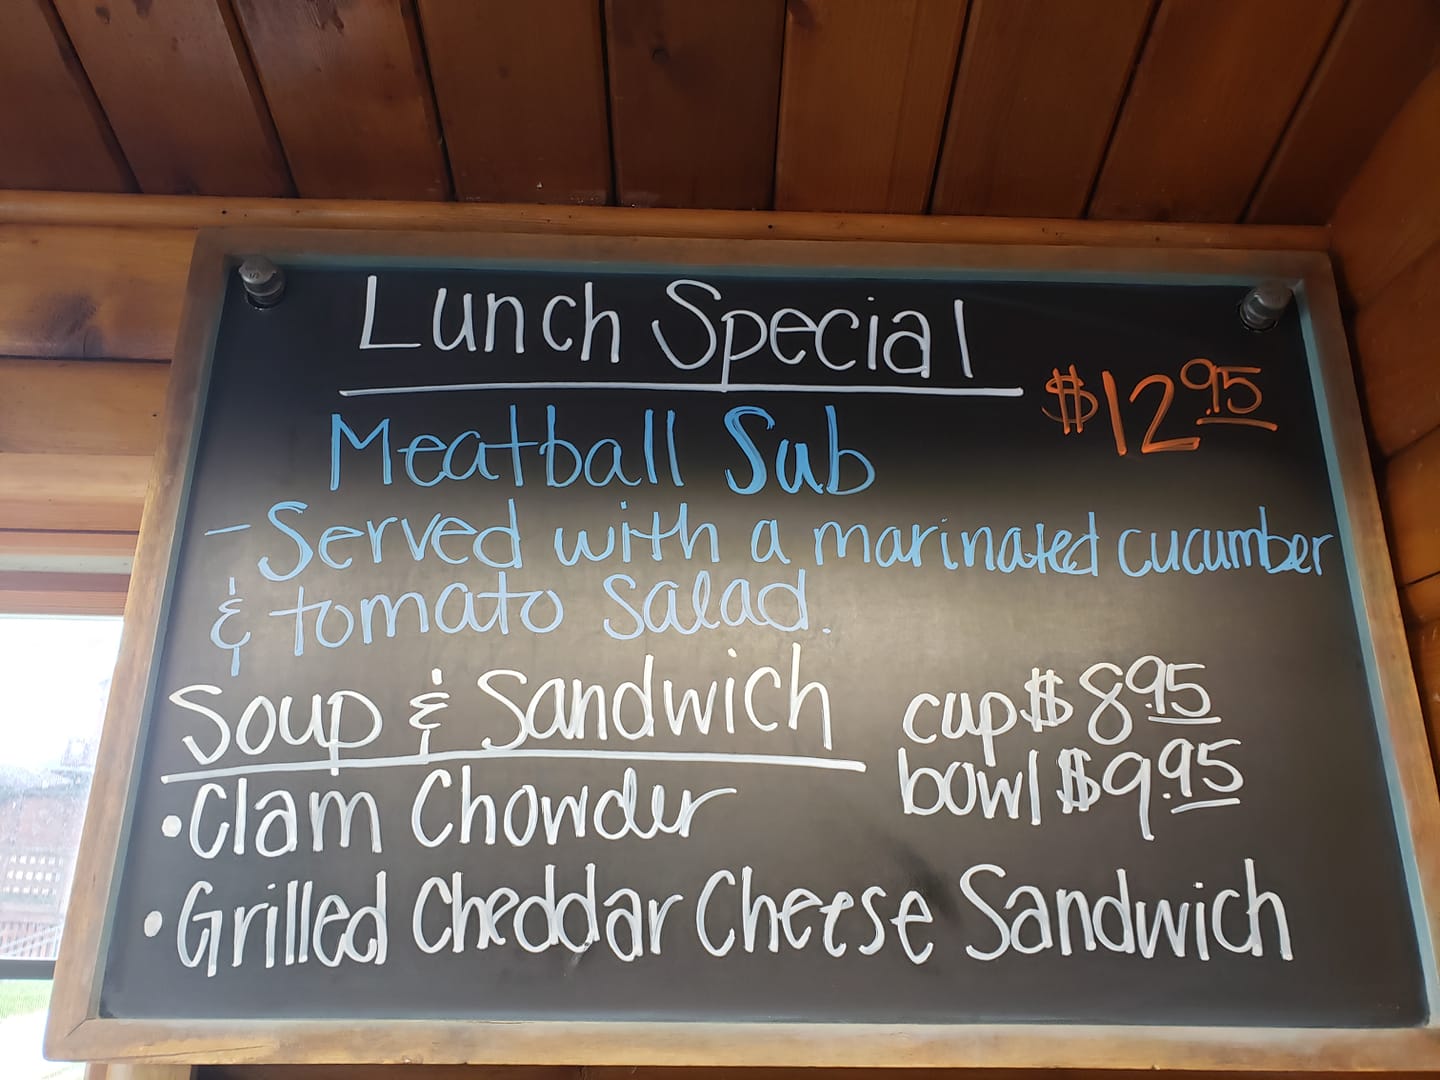 Lunch Special
$12.95
Meatball Sub
- Served with a marinated cucumber
& tomato Salad.
Soup & Sandwich
cup $8.95
bowl $9.95
• Clam Chowder
• Grilled Cheddar Cheese Sandwich